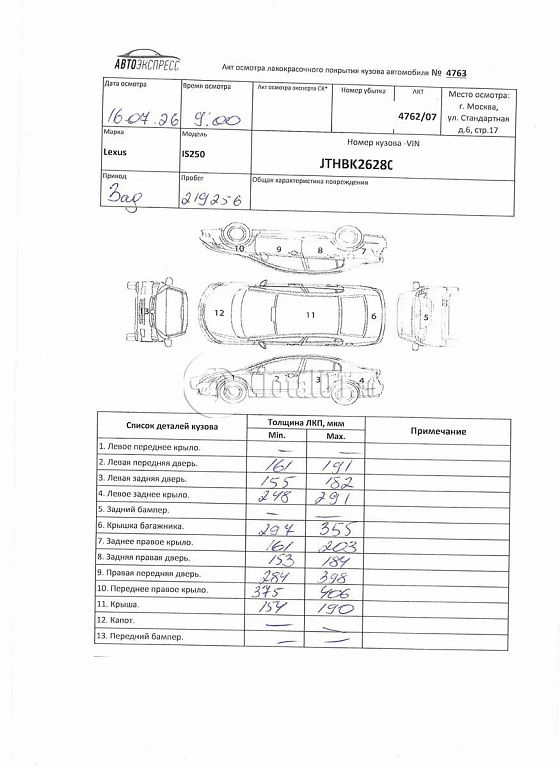 АВТОЭКСПРЕСС
Акт осмотра лакокрасочного покрытия кузова автомобиля № 4763
Дата осмотра Время осмотра Акт осмотра эксперта СК* Номер убытка АКТ Место осмотра:
16.07.26 9:00 4762/07 г. Москва,
ул. Стандартная
д.6, стр.17
Марка Модель Номер кузова -VIN
Lexus IS250 JTHBK2628
Привод Пробег Общая характеристика повреждений
Зад 219256
10 9 8 7
13 12 11 6 5
1 2 3 4
Список деталей кузова Толщина ЛКП, мкм Примечание
Min. Max.
1. Левое переднее крыло. — —
2. Левая передняя дверь. 161 191
3. Левая задняя дверь. 155 182
4. Левое заднее крыло. 248 291
5. Задний бампер. — —
6. Крышка багажника. 297 355
7. Заднее правое крыло. 161 203
8. Задняя правая дверь. 153 184
9. Правая передняя дверь. 284 398
10. Переднее правое крыло. 375 406
11. Крыша. 154 190
12. Капот. — —
13. Передний бампер. — —